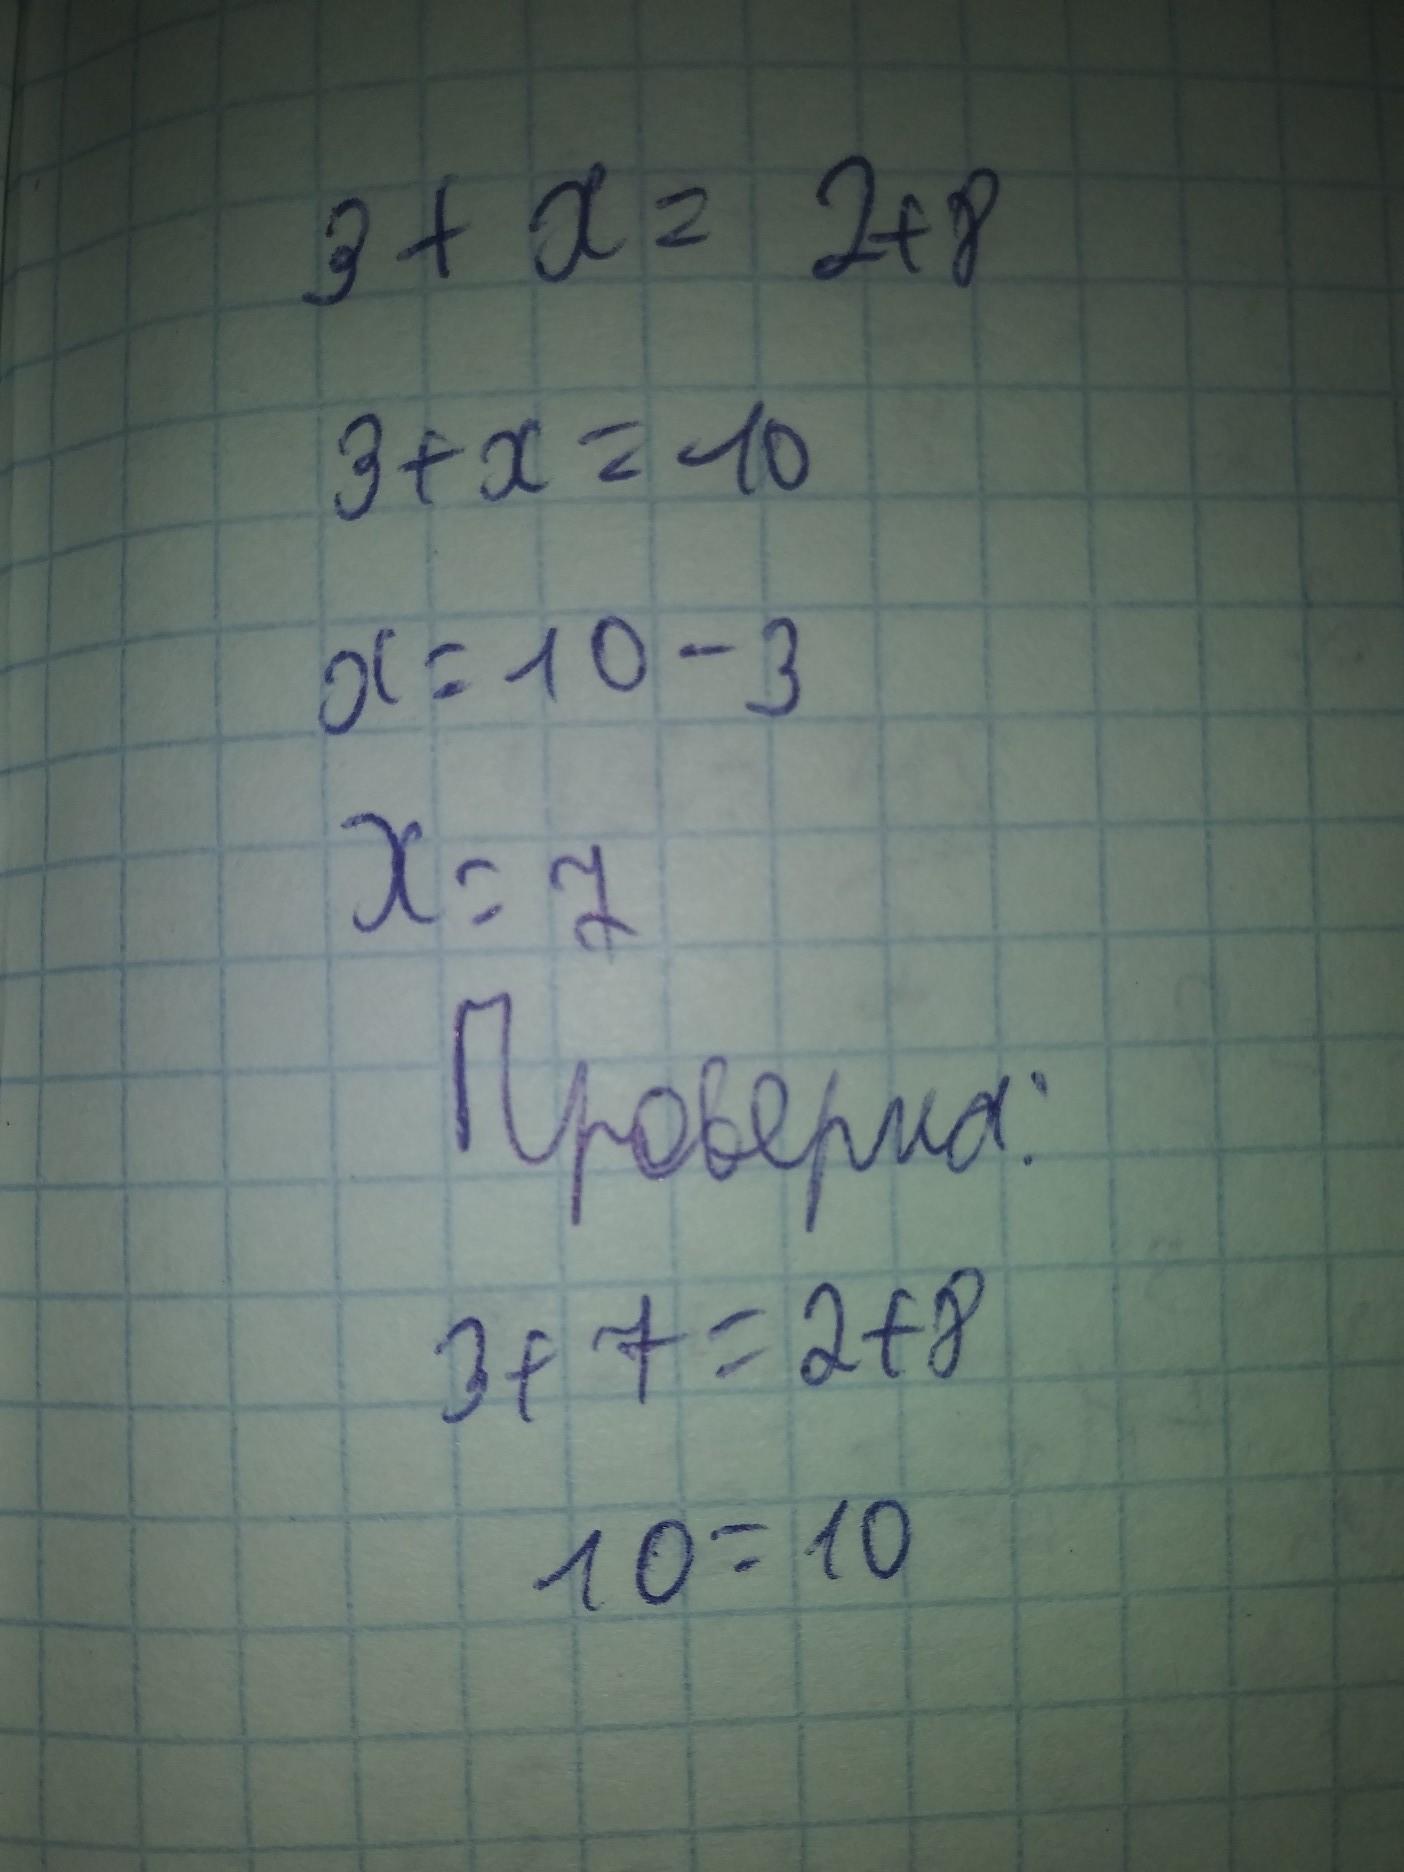 3 + x = 2+8
3+x = 10
x = 10 - 3
x = 7
Проверка:
3 + 7 = 2+8
10 = 10